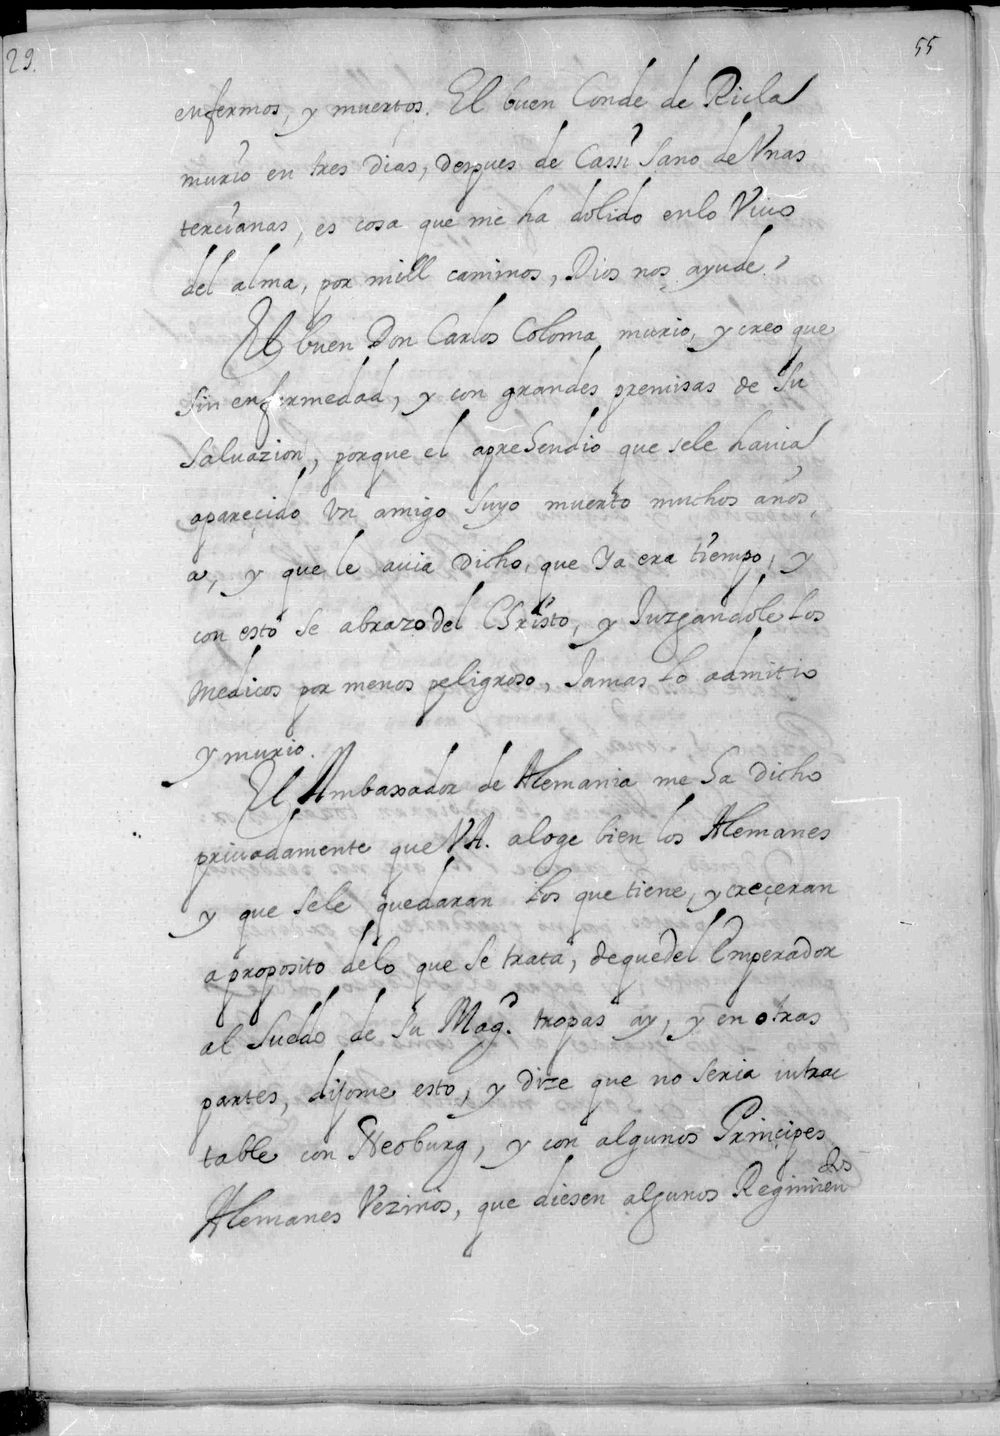 29.
55
enfermos, y muertos. El buen Conde de Ricla
murio en tres dias, despues de Cassi Sano de Vnas
tercianas, es cosa que me ha dolido enlo Viuo
del alma, por mill caminos, Dios nos ayude.
El buen Don Carlos Coloma murio, y creo que
sin enfermedad, y con grandes premisas de Su
Saluazion, porque el aprehendio que sele hauia
apareçido Vn amigo Suyo muerto muchos años
a, y que le auia Dicho, que Ya era tiempo, y
con esto se abrazo del Christo, y Juzgandole los
Medicos por menos peligroso, Jamas lo admitio
y murio.
El Ambaxador de Alemania me ha dicho
priuadamente que VA. aloge bien los Alemanes
y que sele quedaran los que tiene, y creçeran
aproposito delo que se trata, dequedel Emperador
al Sueldo de Su Magd. tropas ay, y en otras
partes, dijome esto, y dize que no seria intrac
table con Neoburg, y con algunos Prinçipes
Alemanes Vezinos, que diesen algunos Regimien
tos